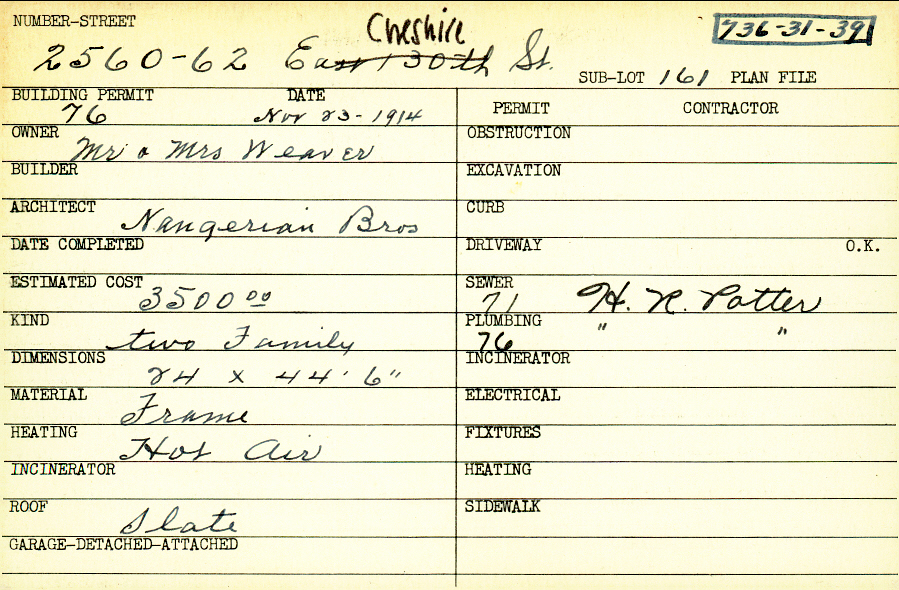 NUMBER-STREET
Cheshire
736-31-39
2560-62 East 130th St.
SUB-LOT 161 PLAN FILE
BUILDING PERMIT DATE
76 Nov 23-1914
OWNER
Mr & Mrs Weaver
BUILDER
ARCHITECT
Nangerian Bros
DATE COMPLETED
ESTIMATED COST
3500 00
KIND
two Family
DIMENSIONS
24 x 44' 6"
MATERIAL
Frame
HEATING
Hot Air
INCINERATOR
ROOF
Slate
GARAGE-DETACHED-ATTACHED
PERMIT CONTRACTOR
OBSTRUCTION
EXCAVATION
CURB
DRIVEWAY O.K.
SEWER
71 H. R. Potter
PLUMBING
76 " "
INCINERATOR
ELECTRICAL
FIXTURES
HEATING
SIDEWALK